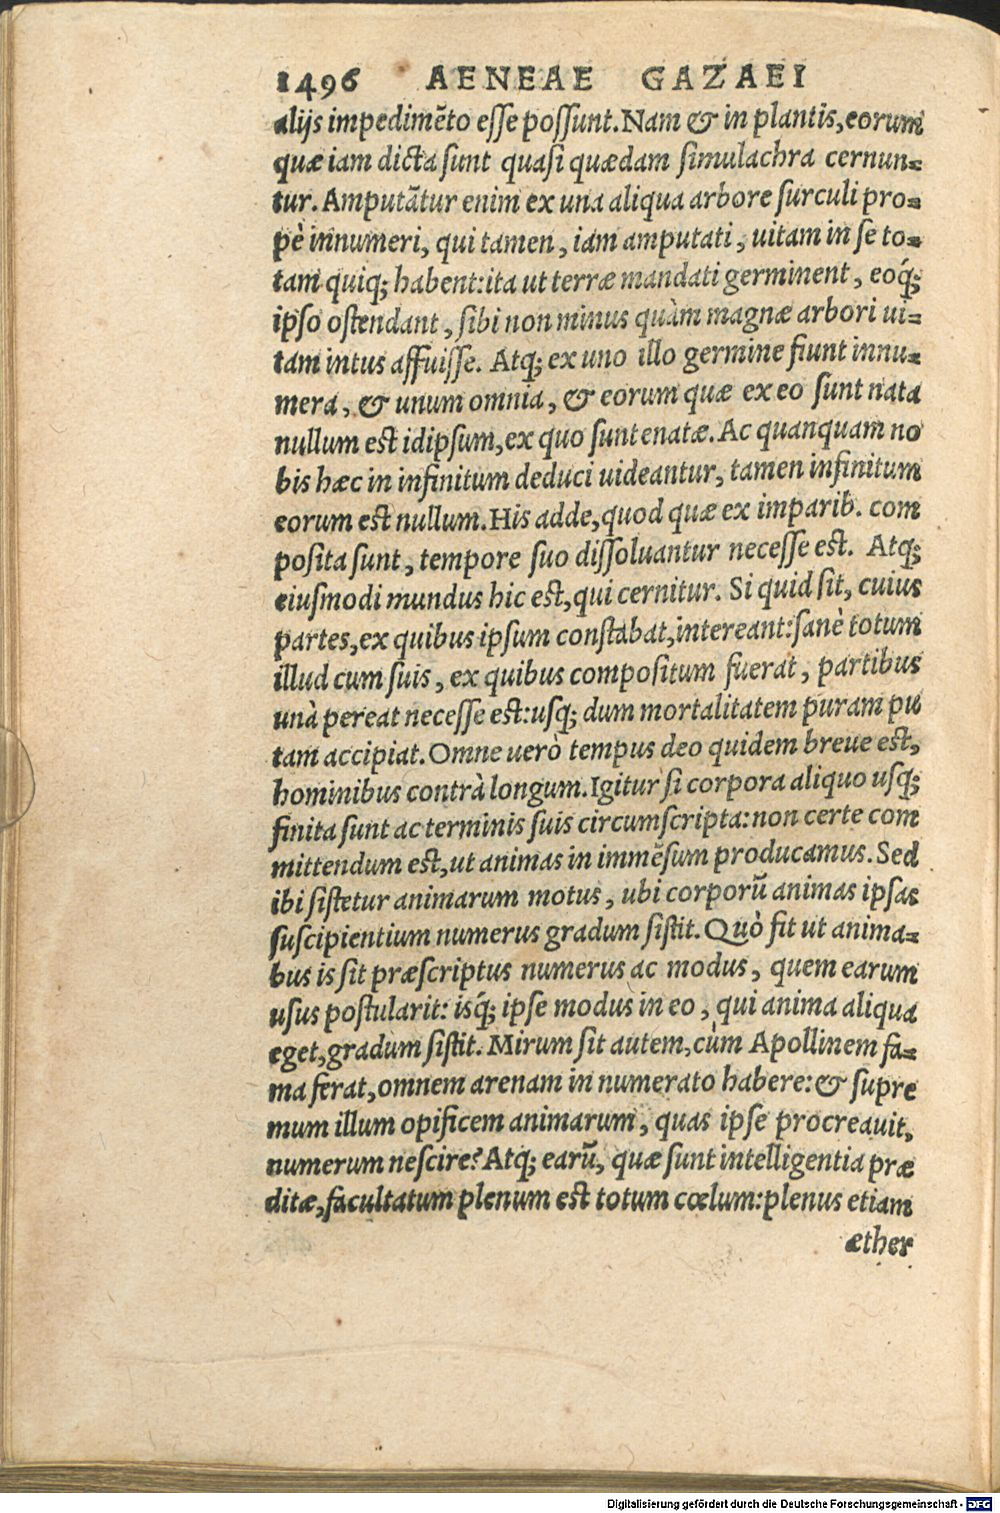 1496 AENEAE GAZAEI
alijs impedimẽto esse possunt. Nam & in plantis, eorum
quæ iam dicta sunt quasi quædam simulachra cernun=
tur. Amputãtur enim ex una aliqua arbore surculi pro=
pè innumeri, qui tamen, iam amputati, uitam in se to=
tam quiq; habent: ita ut terræ mandati germinent, eoq́;
ipso ostendant, sibi non minus quàm magnæ arbori ui=
tam intus affuisse. Atq; ex uno illo germine fiunt innu=
mera, & unum omnia, & eorum quæ ex eo sunt nata
nullum est idipsum, ex quo sunt enatæ. Ac quanquam no
bis hæc in infinitum deduci uideantur, tamen infinitum
eorum est nullum. His adde, quod quæ ex imparib. com
posita sunt, tempore suo dissoluantur necesse est. Atq;
eiusmodi mundus hic est, qui cernitur. Si quid sit, cuius
partes, ex quibus ipsum constabat, intereant: sanè totum
illud cum suis, ex quibus compositum fuerat, partibus
unà pereat necesse est: usq; dum mortalitatem puram pu
tam accipiat. Omne uerò tempus deo quidem breue est,
hominibus contrà longum. Igitur si corpora aliquo usq;
finita sunt ac terminis suis circumscripta: non certe com
mittendum est, ut animas in immẽsum producamus. Sed
ibi sistetur animarum motus, ubi corporũ animas ipsas
suscipientium numerus gradum sistit. Quò fit ut anima=
bus is sit præscriptus numerus ac modus, quem earum
usus postularit: isq́; ipse modus in eo, qui anima aliqua
eget, gradum sistit. Mirum sit autem, cùm Apollinem fa=
ma ferat, omnem arenam in numerato habere: & supre
mum illum opificem animarum, quas ipse procreauit,
numerum nescire? Atq; earũ, quæ sunt intelligentia præ
ditæ, facultatum plenum est totum cœlum: plenus etiam
æther
Digitalisierung gefördert durch die Deutsche Forschungsgemeinschaft - DFG